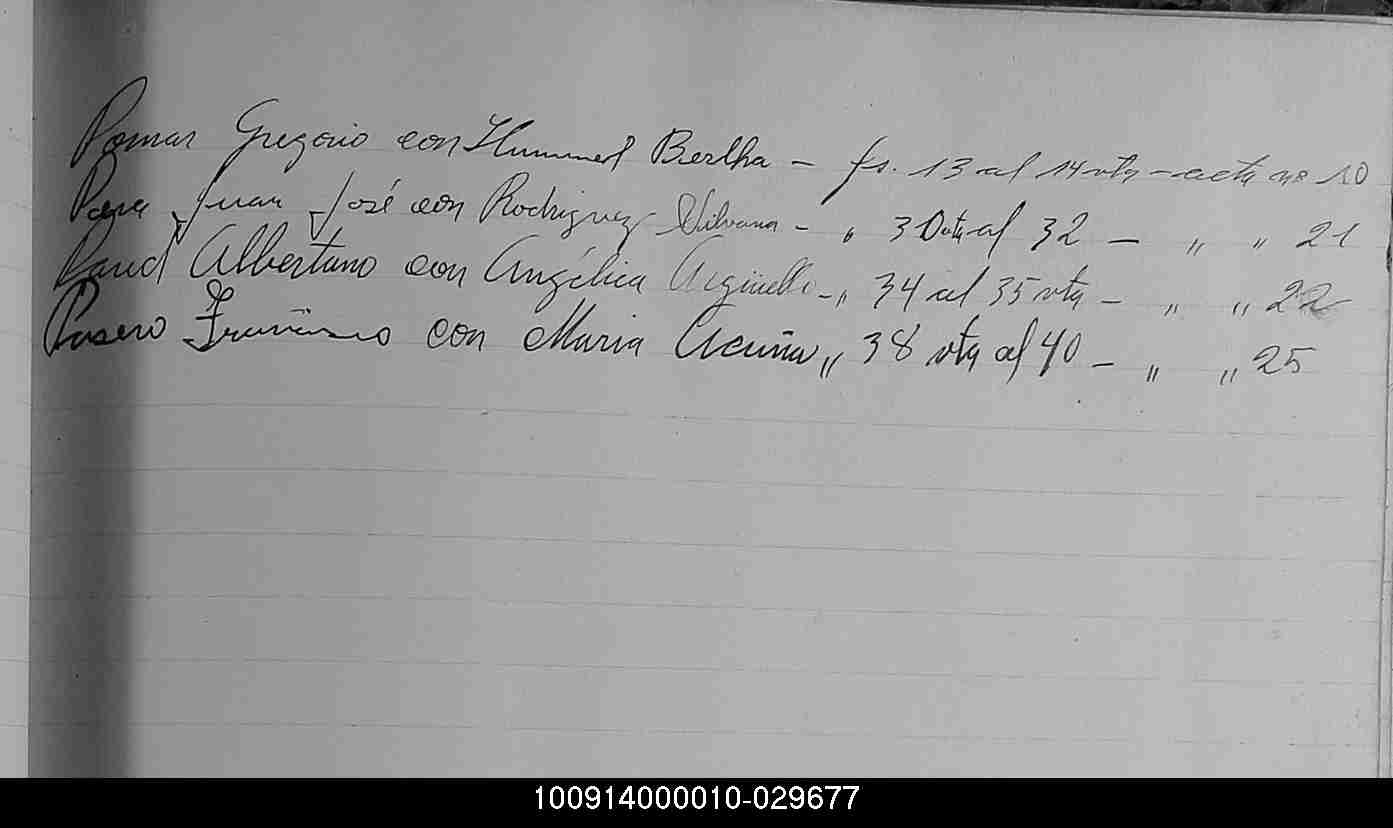 Pomar Gregorio con Hummel Bertha - fs. 13 al 14 vta - acta nº 10
Juan José con Rodriguez Silvana - " 30 vta al 32 - " " 21
Albertano con Angélica Argüello - " 34 al 35 vta - " " 22
Pasero Francisco con Maria Acuña " 38 vta al 40 - " " 25
100914000010-029677